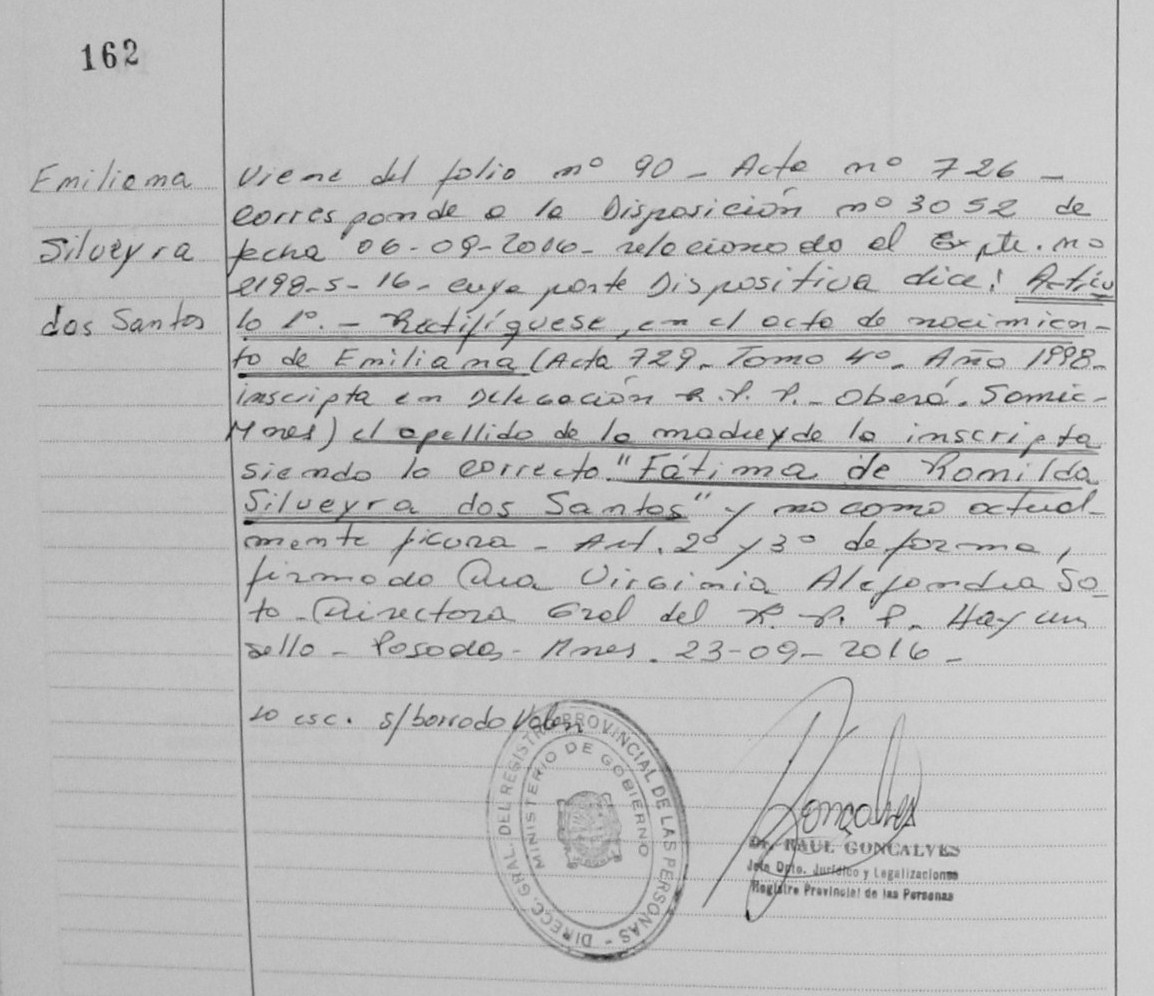 162
Emiliana
Silveyra
dos Santos
Viene del folio nº 90 - Acta nº 726 -
corresponde a la Disposición nº 3052 de
fecha 06-09-2016 - relacionado al Expte. no
2198-S-16 - cuya parte Dispositiva dice: Artícu
lo 1º. - Rectifíquese, en el acta de nacimien-
to de Emiliana (Acta 729 - Tomo 4º - Año 1998 -
inscripta en Delegación R.P.P. - Oberá -
Mnes) el apellido de la madre y de la inscripta
siendo lo correcto "Fátima de Romilda
Silveyra dos Santos" y no como actual-
mente figura - Art. 2º y 3º de forma,
firmado Dra Virginia Alejandra So
to - Directora Gral del R. P. P. - Hay un
sello - Posadas - Mnes. 23-09-2016 -
Lo esc. s/borrado Valen
DIRECC. GRAL. DEL REGISTRO PROVINCIAL DE LAS PERSONAS -
MINISTERIO DE GOBIERNO
Gonçalves
Dr. RAUL GONCALVES
Jefe Dpto. Jurídico y Legalizaciones
Registro Provincial de las Personas